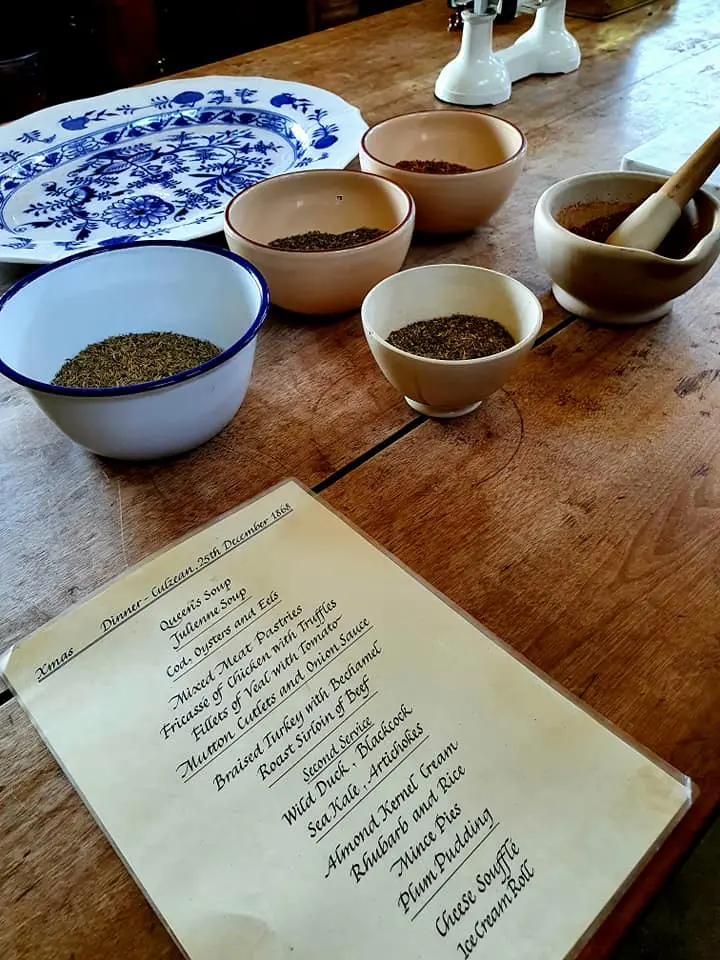 Xmas Dinner - Culzean, 25th December 1868
Queen's Soup
Julienne Soup
Cod, Oysters and Eels
Mixed Meat Pastries
Fricasse of Chicken with Truffles
Fillets of Veal with Tomato
Mutton Cutlets and Onion Sauce
Braised Turkey with Bechamel
Roast Sirloin of Beef
Second Service
Wild Duck, Blackcock
Sea Kale, Artichokes
Almond Kernel Cream
Rhubarb and Rice
Mince Pies
Plum Pudding
Cheese Soufflé
Ice Cream Roll